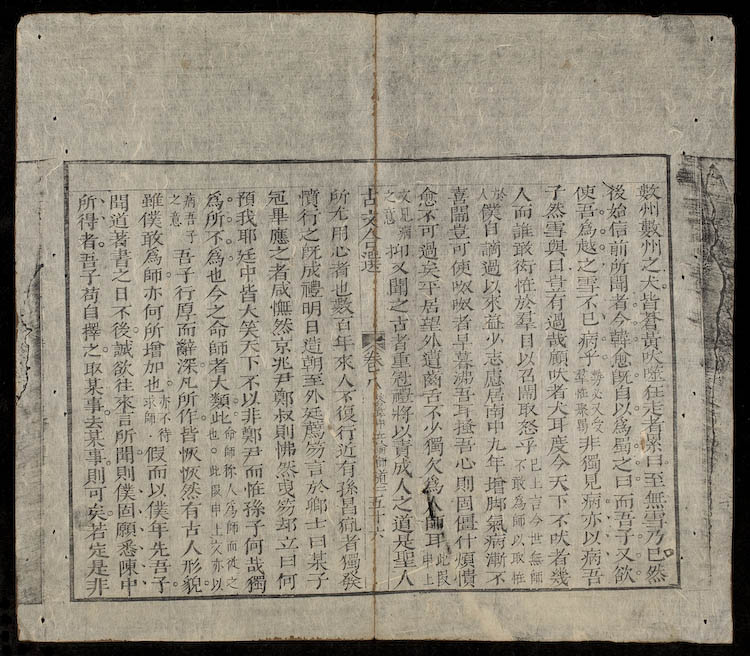 數州數州之犬皆蒼黃吠噬狂走者累日至無雪乃已然
後始信前所聞者今韓愈既自以爲蜀之日而吾子又欲
使吾爲越之雪不已病乎 必又受羣怪聚罵 非獨見病亦以病吾
子然雪與日豈有過哉顧吠者犬耳度今天下不吠者幾
人而誰敢衒怪於羣目以召鬧取怒乎 已上言今世無師不敢爲師以取怪
於人 僕自謫過以來益少志慮居南中九年增腳氣病漸不
喜鬧豈可使呶呶者早暮咈吾耳騷吾心則固僵仆煩憒
愈不可過矣平居望外遭齒舌不少獨欠爲人師耳 此段申上
文見病之意 抑又聞之古者重冠禮將以責成人之道是聖人
古文合選 卷八 五十六
所尤用心者也數百年來人不復行近有孫昌胤者獨發
憤行之既成禮明日造朝至外廷薦笏言於鄉士曰某子
冠畢應之者咸憮然京兆尹鄭叔則怫然曳笏却立曰何
預我耶廷中皆大笑天下不以非鄭尹而怪孫子何哉獨
爲所不爲也今之命師者大類此 命師 人爲師而彼之也。此段申上文亦以
病吾子之意 吾子行厚而辭深凡所作皆恢恢然有古人形貌
雖僕敢爲師亦何所增加也 亦不待求師 假而以僕年先吾子
聞道著書之日不後誠欲往來言所聞則僕固願悉陳中
所得者吾子苟自擇之取某事去某事則可矣若定是非